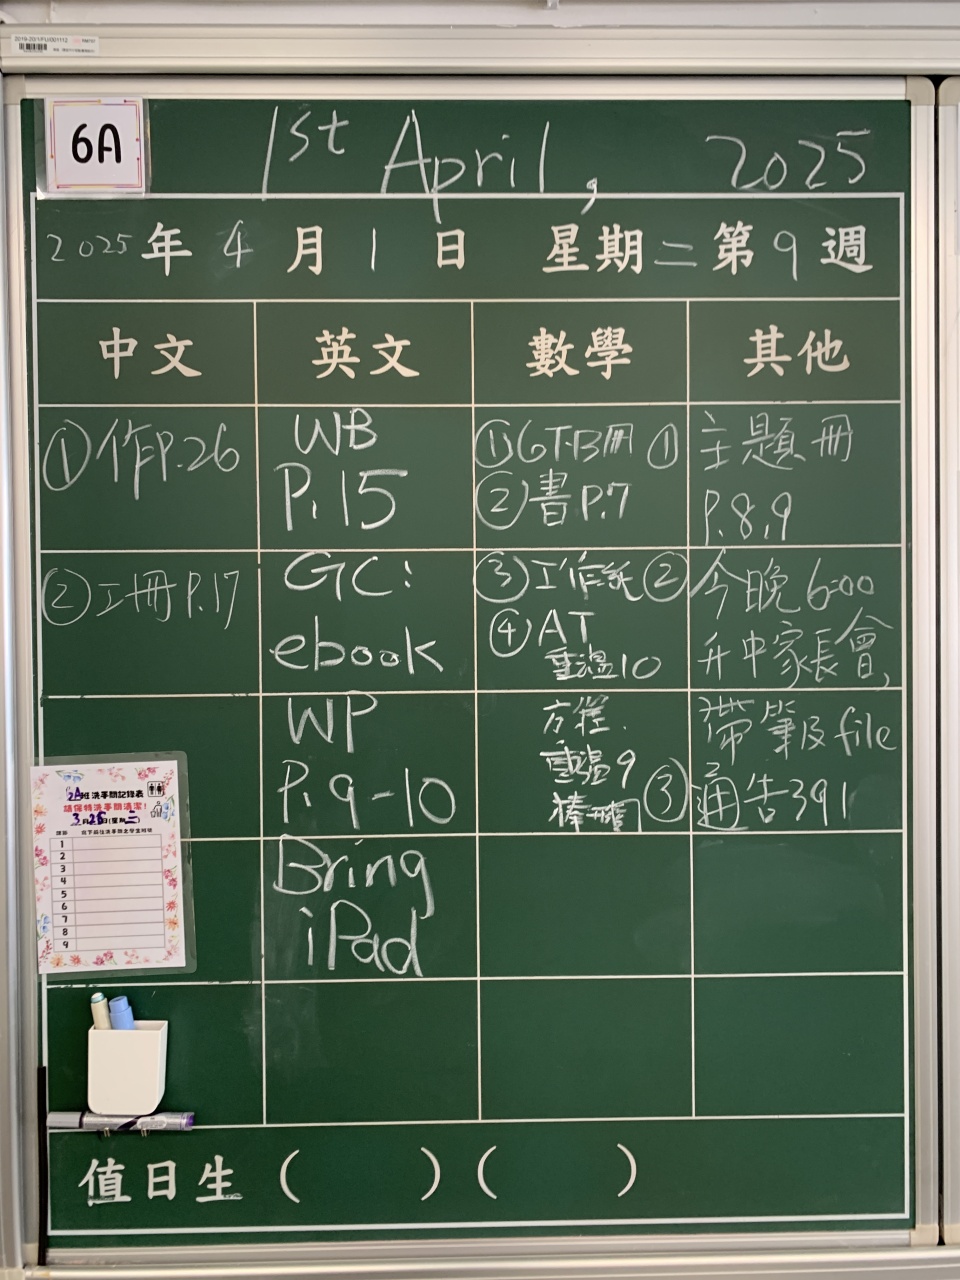 2019-20/1/FU/001112
6A
1st April, 2025
2025年4月1日 星期二第9週
中文 英文 數學 其他
①作P.26
②工冊P.17
WB
P.15
GC:
ebook
WP
P.9-10
Bring
iPad
①6下B冊
②書P.7
③工作紙
④AT
重温10
方程
重温9
棒形圖
①主題冊
P.8,9
②今晚6:00
升中家長會,
帶筆及file
③通告391
2A班洗手間記錄表
請保持洗手間清潔!
3月25日(星期二)
1
2
3
4
5
6
7
8
9
值日生 ( ) ( )